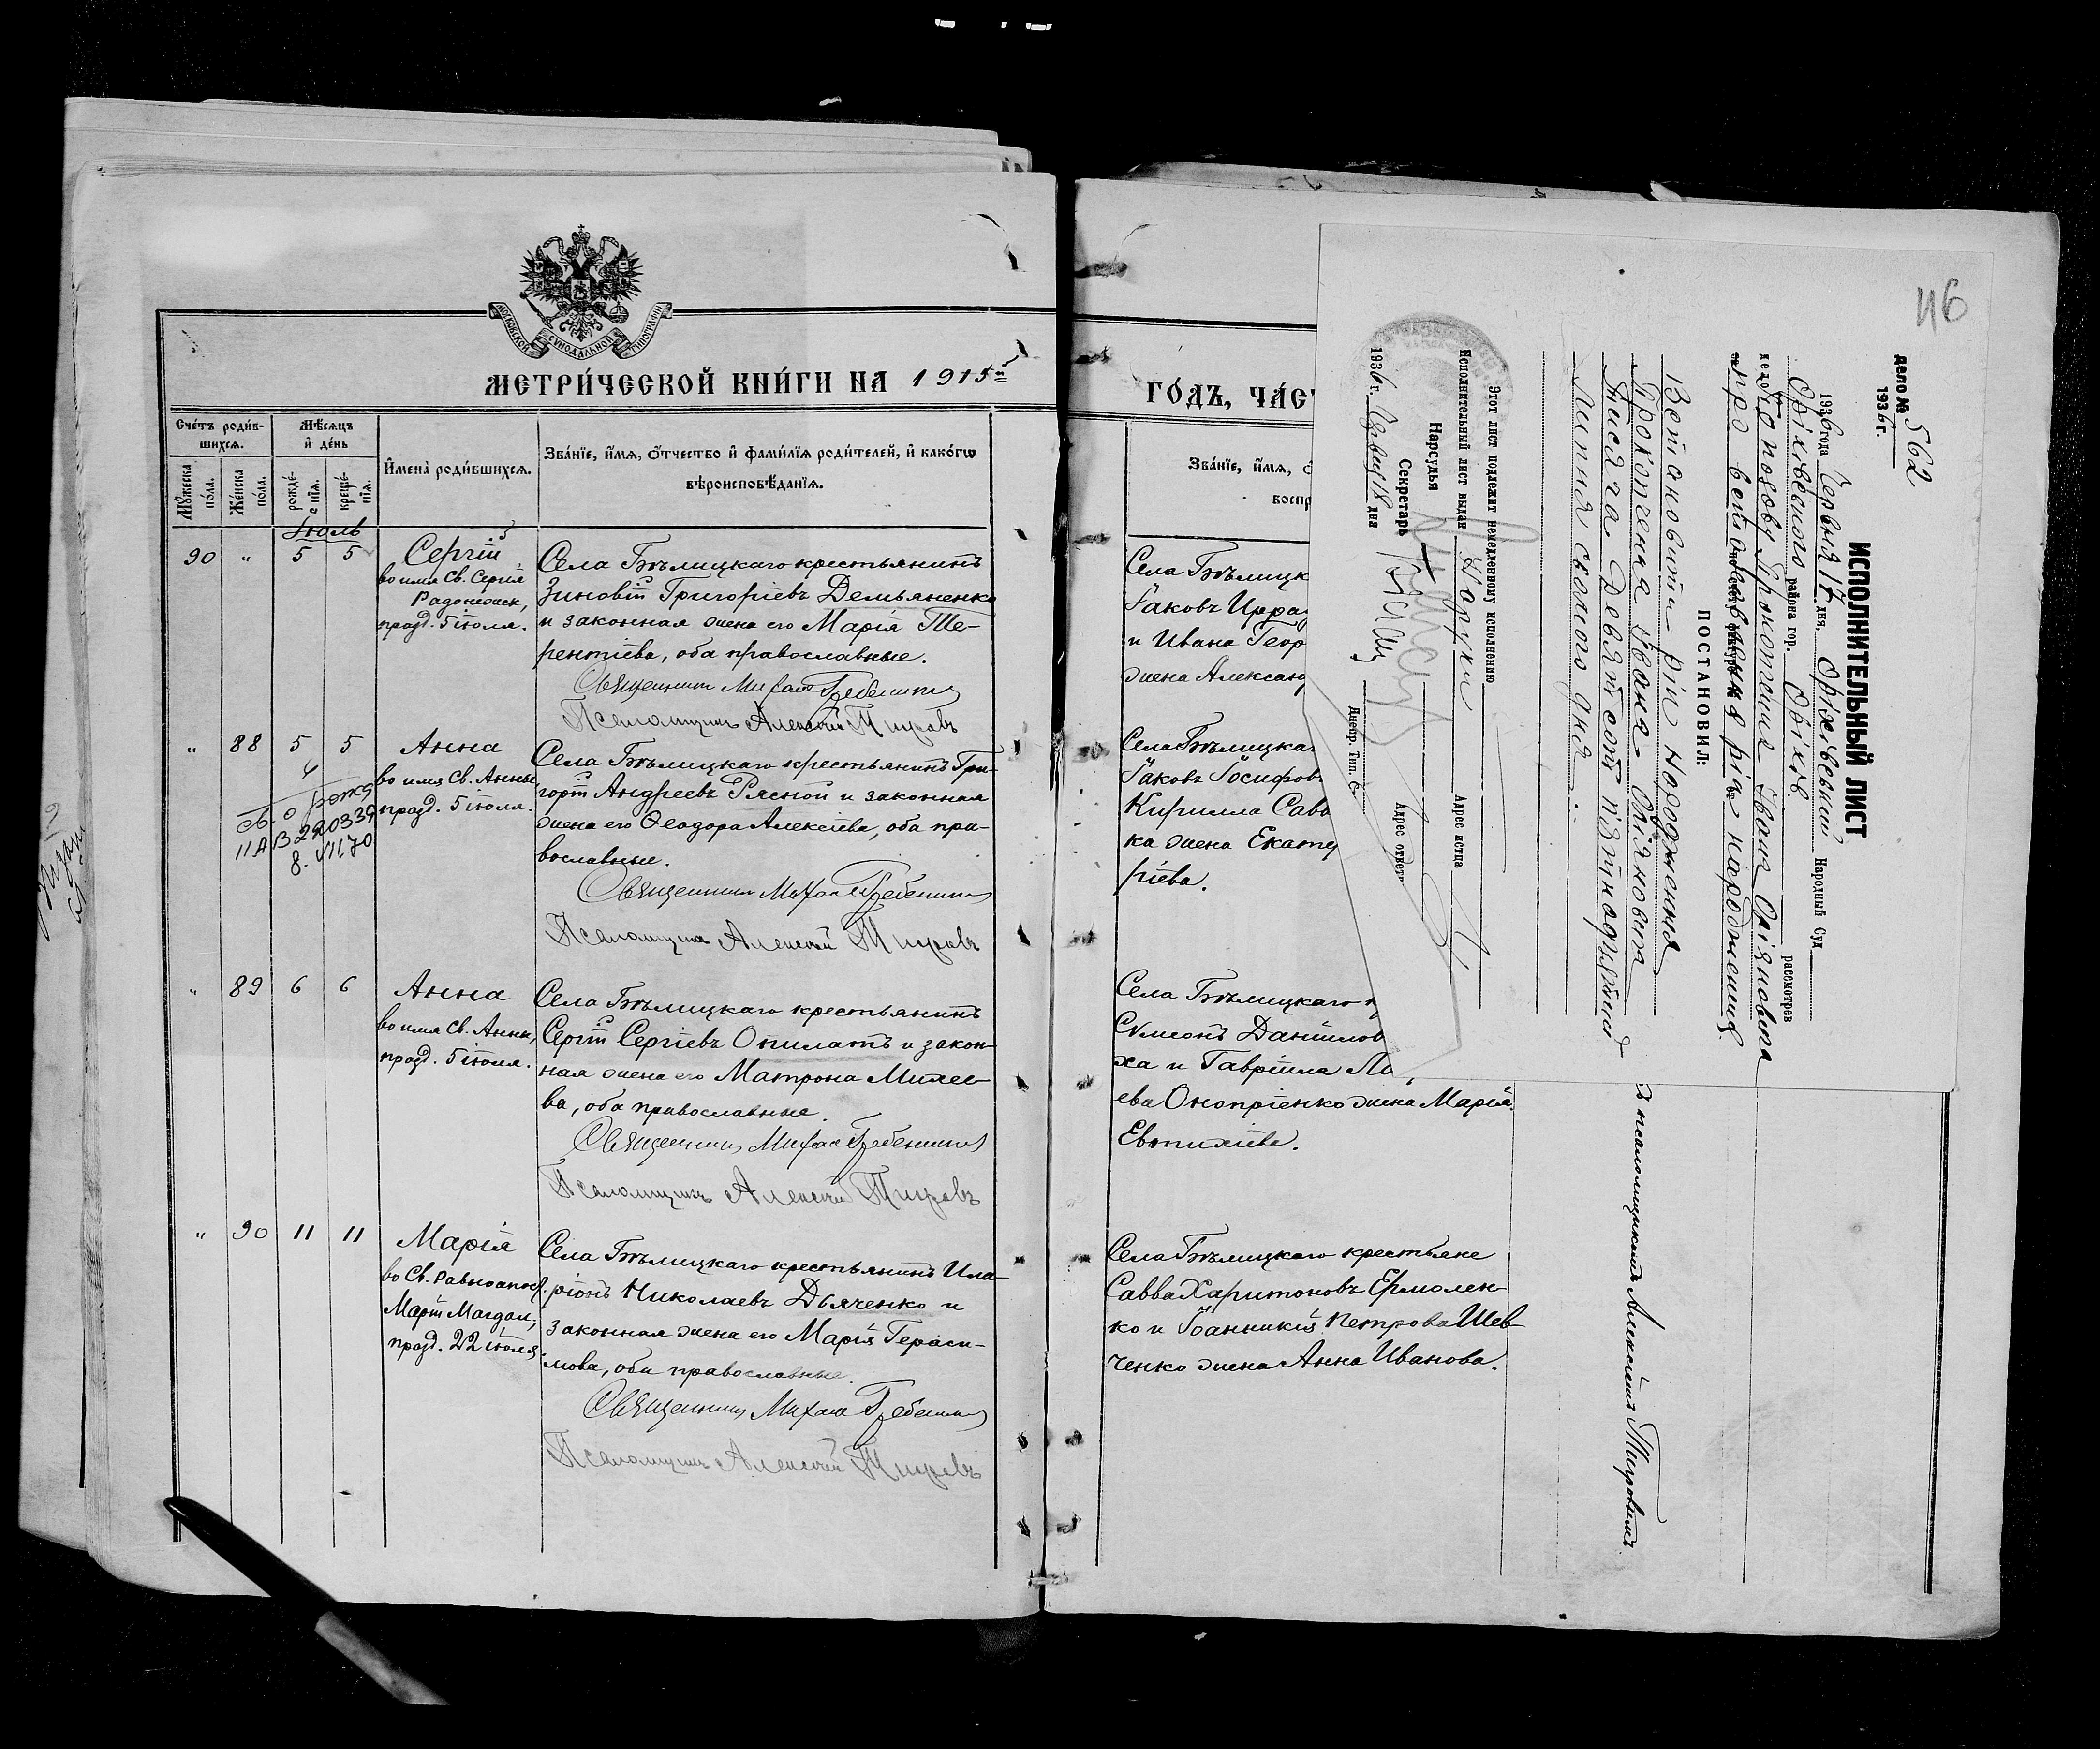 МОСКОВСКОЙ СѴНОДАЛЬНОЙ ТИПОГРАФІИ
МЕТРИ́ЧЕСКОЙ КНИ́ГИ НА 1915й
Сче́тъ роди́в-
шихся.
Мѣ́сяцъ
и҆ де́нь
И҆мена̀ роди́вшихся.
Зва́нїе, и҆́мѧ, ѻ҆́тчество и҆ фами́лїѧ роди́телей, и҆ како́гѡ
вѣроисповѣ́данїѧ.
Мꙋ́жеска по́ла.
Же́нска по́ла.
рожде́-нїѧ.
креще́-нїѧ.
Іюль
90 " 5 5 Сергій
во имя Св. Сергія
Радонежск,
празд. 5 іюля.
Села Бѣлицкаго крестьянинъ
Зиновій Григоріевъ Демьяненко
и законная жена его Марія Те-
рентіева, оба православные.
Священникъ Михаил Гребенникъ
Псаломщикъ Алексѣй Тировъ
" 88 5 5 Анна
во имя Св. Анны,
празд. 5 іюля.
св. о рожд
II АВ 220339
8. VII 70
Села Бѣлицкаго крестьянинъ Гри-
горій Андреевъ Рясной и законная
жена его Ѳеодора Алексіева, оба пра-
вославные.
Священникъ Михаил Гребенникъ
Псаломщикъ Алексѣй Тировъ
" 89 6 6 Анна
во имя Св. Анны,
празд. 5 іюля.
Села Бѣлицкаго крестьянинъ
Сергій Сергіевъ Опилатъ и закон-
ная жена его Матрона Михее-
ва, оба православные.
Священникъ Михаил Гребенникъ
Псаломщикъ Алексѣй Тировъ
" 90 11 11 Марія
во Св. Равноапос.
Маріи Магдал,
празд. 22 іюля
Села Бѣлицкаго крестьянинъ Ила-
ріонъ Николаевъ Дьяченко и
законная жена его Марія Гераси-
мова, оба православные.
Священникъ Михаил Гребенникъ
Псаломщикъ Алексѣй Тировъ
ГО́ДЪ, ЧА́СТ
Зва́нїе, и҆́мѧ, ѻ
воспр
Села Бѣлицк
Іаковъ
и Ивана Геор
жена Александ
Села Бѣлицка
Іаковъ Іосифов
Кирилла Савв
ка жена Екате
ріева.
Села Бѣлицкаго к
Сѵмеонъ Даніилов
ха и Гавріила Ли
ева Оноприенко жена Марія
Евтихіева.
Села Бѣлицкаго крестьяне
Савва Харитоновъ Ермолен-
ко и Іоанникія Петрова Шев-
ченко жена Анна Иванова.
псаломщикомъ Алексѣемъ Тировымъ
116
дело № 562
1936 г.
ИСПОЛНИТЕЛЬНЫЙ ЛИСТ
1936 года Червня 17 дня, Оріхівський Народный Суд
Оріхівського района гор. Оріхів рассмотрев
дело По позову Прокопенка Івана Оніяновича
про встановлення рік народження
ПОСТАНОВИЛ:
Встановити рік народження
Прокопенка Івана Оніяновича
тисяча девятсот пятнадцятий
Липня сьомого дня
Этот лист подлежит немедленному исполнению
Исполнительный лист выдан На руки
Адрес истца
Нарсудья
Секретарь
Адрес ответч
1936 г. Червня 18 дня
Днепр. Тип. С